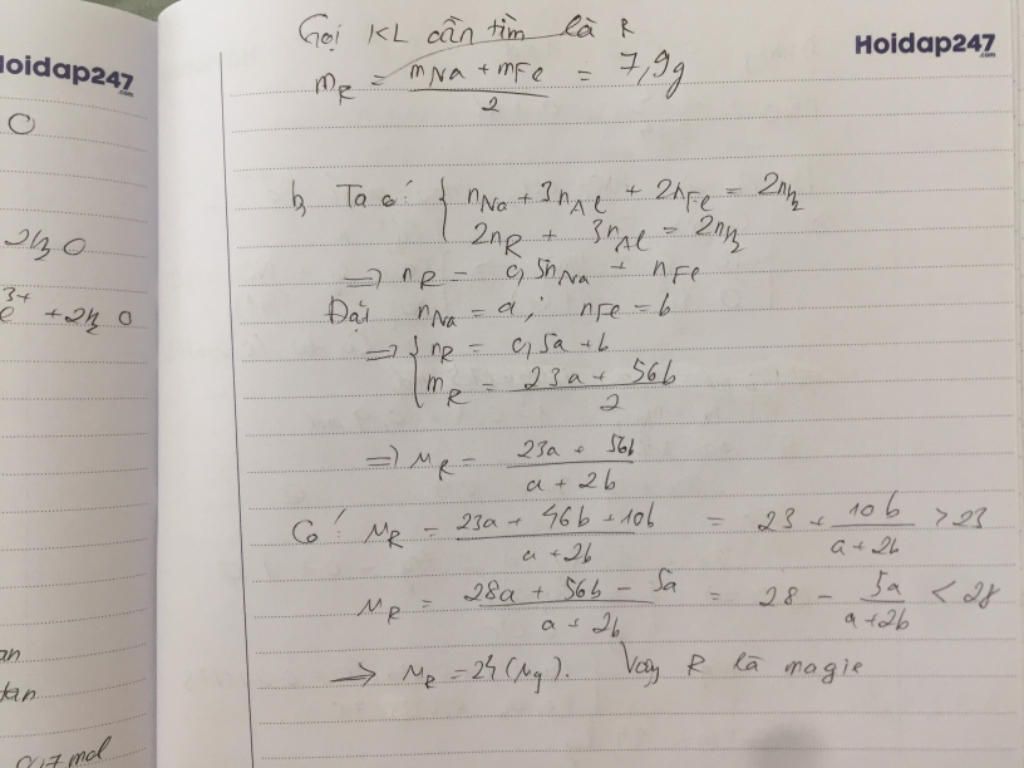 oidap247
.com
O
2H₂O
e³⁺ + 2H₂O
an
tan
0,17 mol
Hoidap247
.com
Gọi KL cần tìm là R
m_R = (m_Na + m_Fe)/2 = 7,9g
b, Ta có: { n_Na + 3n_Al + 2n_Fe = 2n_H₂
2n_R + 3n_Al = 2n_H₂
=> n_R = 0,5n_Na + n_Fe
Đặt n_Na = a; n_Fe = b
=> { n_R = 0,5a + b
m_R = (23a + 56b)/2
=> M_R = (23a + 56b)/(a + 2b)
Có: M_R = (23a + 46b + 10b)/(a + 2b) = 23 + 10b/(a + 2b) > 23
M_R = (28a + 56b - 5a)/(a + 2b) = 28 - 5a/(a + 2b) < 28
=> M_R = 24 (Mg). Vậy R là magie